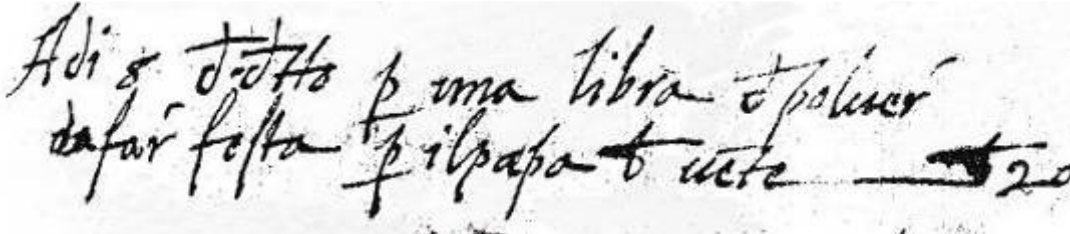 Adi 8 đ đtto p̱ una libra đ poluer
da far festa p̱ il papa ŧ uete — ŧ 20